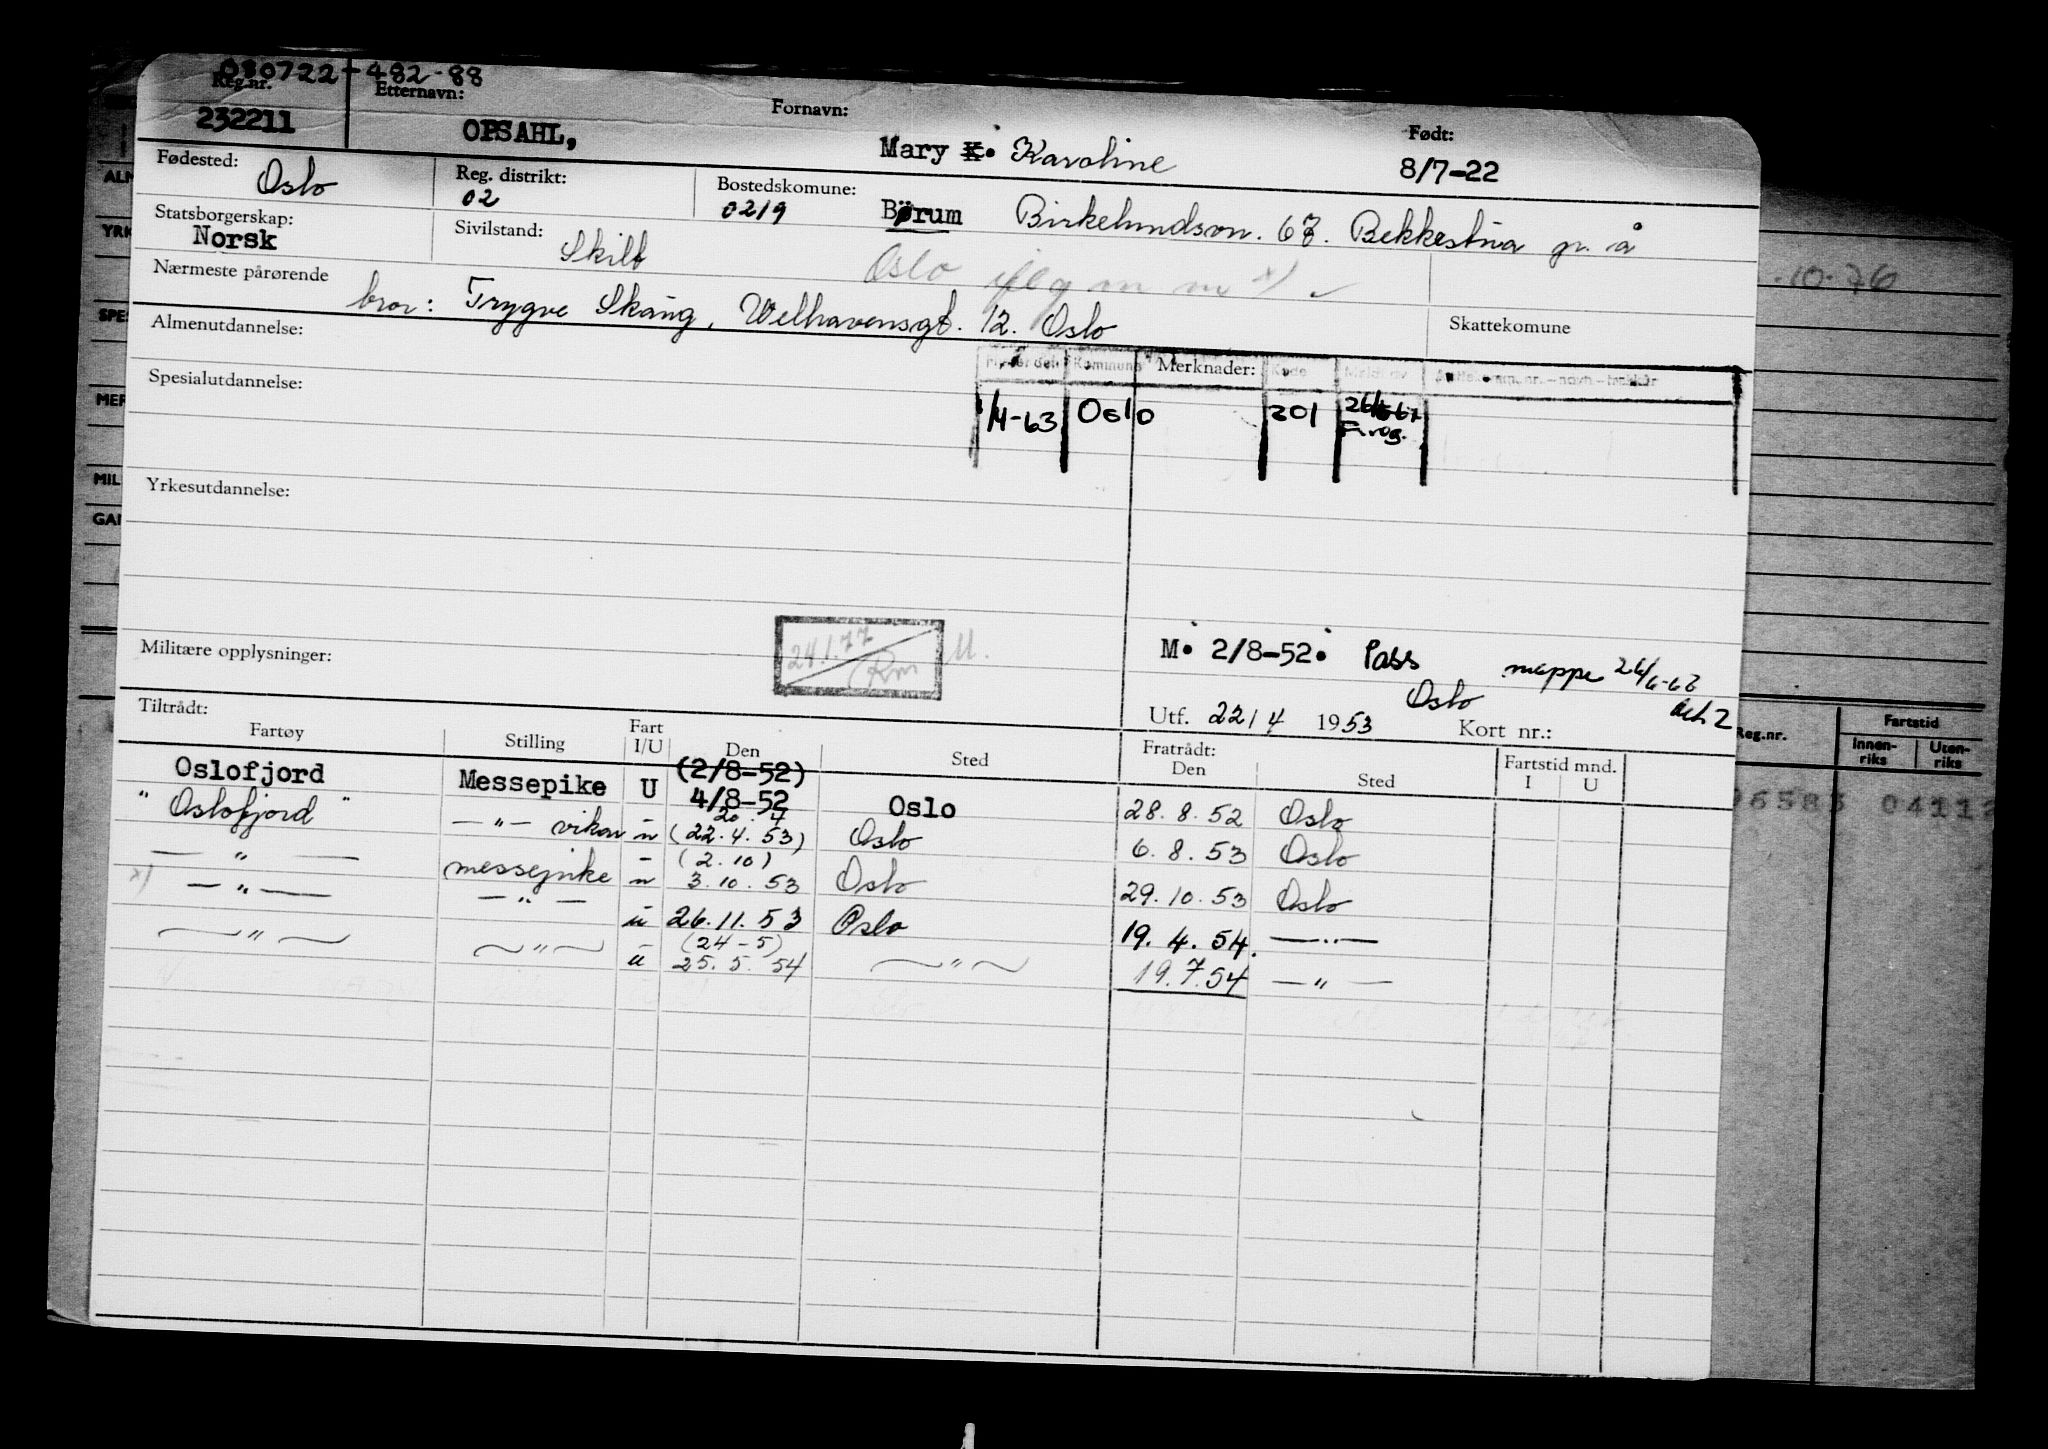 080722-482-88
Reg.nr. Etternavn: Fornavn: Født:
232211 OPSAHL, Mary K. Karoline 8/7-22
Fødested: Oslo Reg. distrikt: 02 Bostedskomune: 0219 Børum Birkelundsvn. 67. Bekkestua
Statsborgerskap: Norsk Sivilstand: Skilt Oslo
Nærmeste pårørende bror: Trygve Skaug, Welhavensgt. 12. Oslo
Almenutdannelse: Skattekomune
Kommune Merknader: Kode
1/4-63 Oslo 301
Spesialutdannelse:
Yrkesutdannelse:
24.1.77
M. 2/8-52. Pass mappe
Militære opplysninger: Oslo
Utf. 22/4 1953 Kort nr.:
Tiltrådt: Fratrådt:
Fartøy Stilling Fart I/U Den Sted Den Sted Fartstid mnd. I U
Oslofjord Messepike U (2/8-52) 4/8-52 Oslo 28.8.52 Oslo
" Oslofjord " — " — vikar u 20.4 (22.4.53) Oslo 6.8.53 Oslo
— " — messepike u (2.10) 3.10.53 Oslo 29.10.53 Oslo
x) — " — — " — u 26.11.53 Oslo 19.4.54. — " —
— " — — " — u (24-5) 25.5.54 — " — 19.7.54 — " —
ALM
YRK
SPES
MER
MIL
GAN
.10.76
Reg.nr. Fartstid
Innen-riks Uten-riks